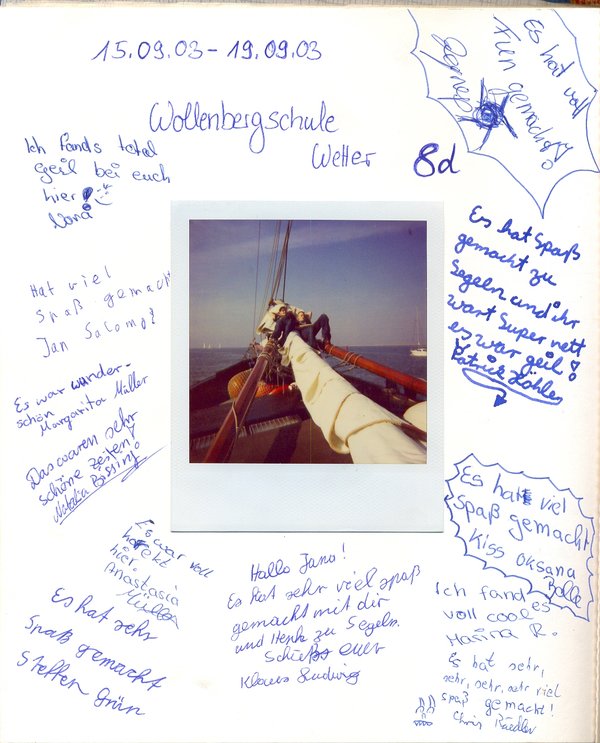 15.09.03 - 19.09.03
Wollenbergschule
Wetter 8d
Es hat voll
Fun gemacht
Ich fands total
geil bei euch
hier!
Nora
Es hat Spaß
gemacht zu
Segeln und ihr
wart Super nett
es war geil!
Patrick Köhler
Hat viel
Spaß gemacht
Jan
Es war wunder-
schön
Margarita Müller
Das waren sehr
schöne Zeiten!
Natalia
Es hat viel
Spaß gemacht
Kiss Oksana
Es war voll
hier.
Anastasia
Müller
Hallo Jana!
Es hat sehr viel spaß
gemacht mit dir
und Henk zu Segeln.
euer
Klaus Ludwig
Ich fand es
voll cool
Marina R.
Es hat sehr
Spaß gemacht
Steffen Grün
Es hat sehr,
sehr, sehr, sehr viel
spaß gemacht!
Chris